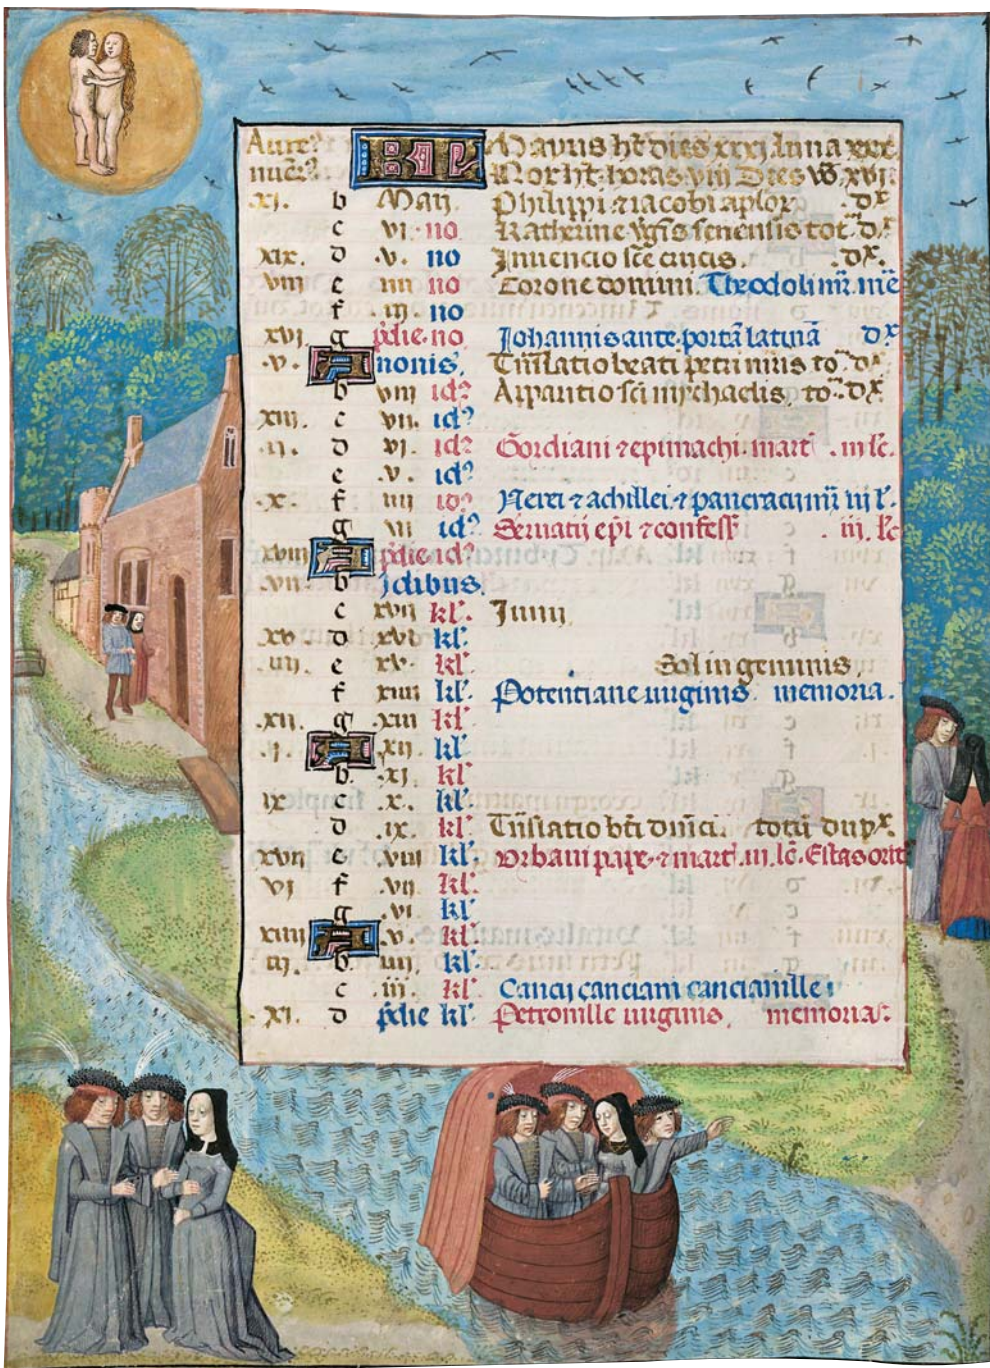 Auree KL Mayus ht dies xxxi luna xxx.
nuc̄i Nox ht horas viij Dies vo xvi
xi. b Maij Philippi ⁊ iacobi aplor dx
c vi no Katherine vgīs senensis tot d.
xix. d .v. no Inuencio sc̄e crucis. .dx.
viii e iiii no Corone domini. Theodoli m̄r. mē
f .iij. no
xvi. g pdie. no Johannis ante portā latinā dx
.v. A nonis. Tn̄slatio beati petri mr̄is to d
b viij id Apparitio sc̄i michaelis. to dx
xiii. c vii. id
.ii. d vi. id Gordiani ⁊ epimachi. mart .iij lc.
e .v. id
.x. f iiii id Nerei ⁊ achillei. ⁊ pancracij m̄r iij l.
g iii id Seruatij ep̄i ⁊ confess iij. lc
xviii A pdie id
.vii. b Idibus.
c xvii kl. Junij
xv. d xvi kl.
.iiii. e xv. kl. Sol in geminis.
f xiiii kl. Potenciane uirginis. memoria.
xii. g .xiii kl
.i. A xii. kl.
b. .xi. kl
ix c .x. kl.
d .ix. kl. Tn̄slatio bt̄i dn̄ici. totū dupx.
xvii e .viii kl. Vrbani pape. ⁊ mart .iii. lc̄. Estas orit
vi f .vii kl.
g .vi. kl.
xiiii A .v. kl.
iii. b iiii. kl.
c .iii. kl Cancij canciani cancianille
.xi. d pdie kl. Petronille uirginis. memoria.